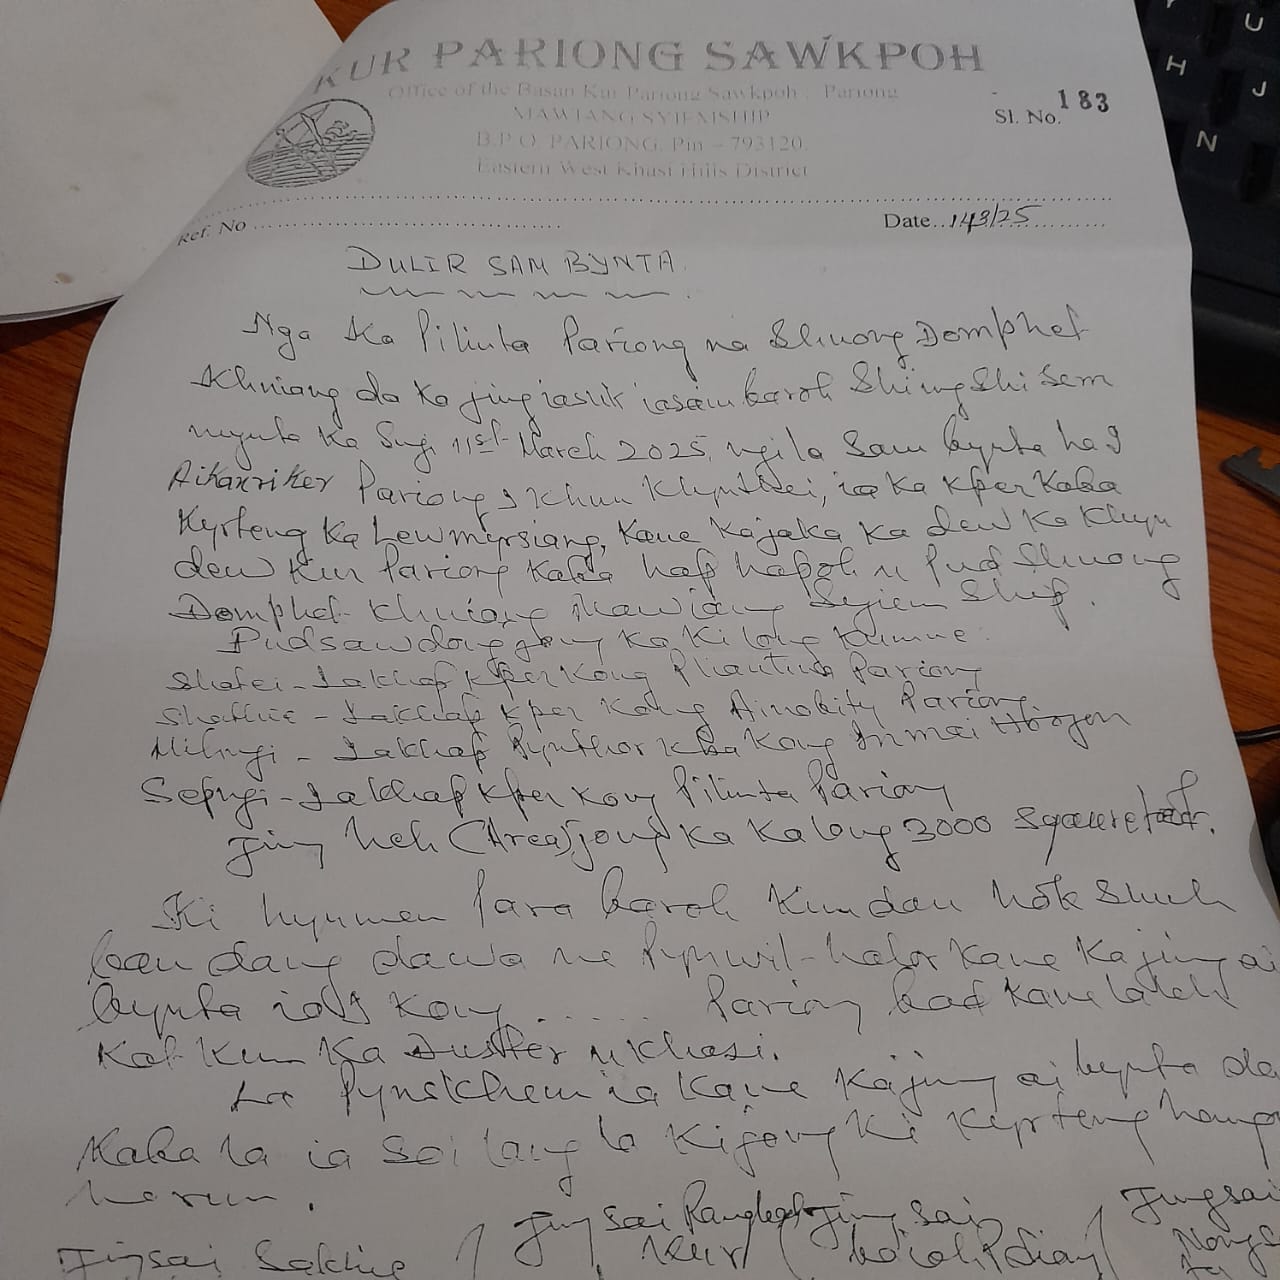 KUR PARIONG SAWKPOH
Office of the Basan Kur Pariong Sawkpoh : Pariong
MAWIANG SYIEMSHIP
B.P.O. PARIONG, Pin – 793120.
Eastern West Khasi Hills District
Sl. No. 183
Ref. No
Date.. 14/3/25
DULIR SAM BYNTA.
Nga Ka Pilinta Pariong na Shnong Domphet
Khniang da ka jingiasuk iasain baroh Shi ing Shi Sem
mynta Ka Sngi 11st March 2025, ngi la Sam bynta ha I
Aikanriker Pariong, I Khun Khynthei, ia Ka Kper Kaba
Kyrteng Ka Lewmyrsiang, Kane Ka jaka Ka dew Ka Khyn
dew Kur Pariong Kaba hap hapoh u Pud Shnong
Domphet Khniang Mawiang Syiem Ship.
Pudsawdong jong Ka Ki long Kumne.
Shatei - Iakhap Kper Kong Pliantina Pariong
Shathie - Iakhap Kper Kong Ainobity Pariong
Mihngi - Iakhap Pynthor Kba Kong Inmai
Sepngi - Iakhap Kper Kong Pilinta Pariong
Jing heh (Area) jong Ka Ka long 3000 Square
Ki hynmen Para baroh Kim don hok Shuh
ban dang dawa ne Pynwit halor Kane Ka jing ai
bynta ia I Kong ...... Pariong bad Kane la leh
Kat Kum Ka Duster u Khasi.
La Pynskhem ia Kane Ka jing ai bynta da
Kaba la ia Soi lang la Ki jong Ki Kyrteng
harum.
Jingsai Sakhie / Jingsai Rangbah / Jingsai / Jingsai
Kur